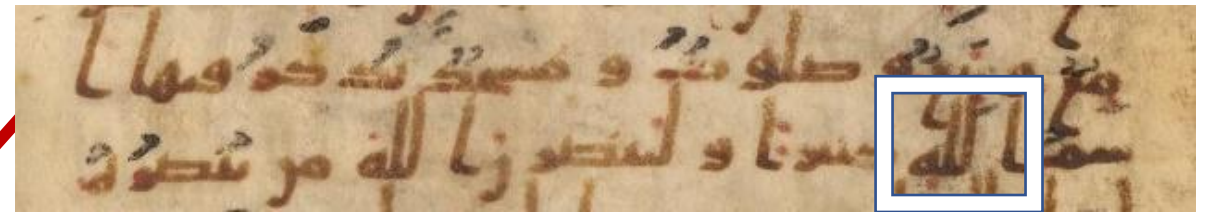 مع وبيع وصلوت و مسجد يذكر فيها ا
سم ا لله كثيرا و لينصر ن ا لله من ينصره